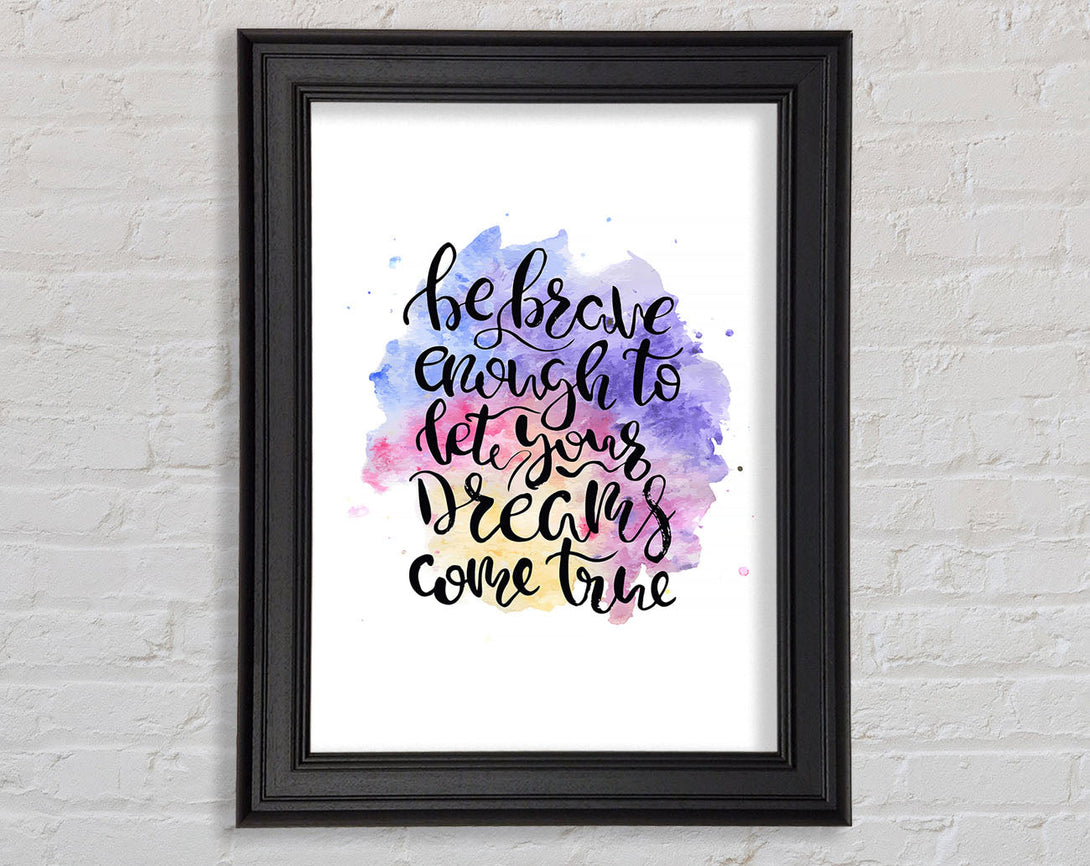 be brave
enough to
let your
DReAMS
come true